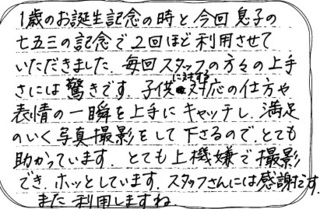 1歳のお誕生記念の時と今回息子の
七五三の記念で2回ほど利用させて
いただきました。毎回スタッフの方々の上手
さには驚きです。子供に対する対応の仕方や
表情の一瞬を上手にキャッチし、満足
のいく写真撮影をして下さるので、とても
助かっています。とても上機嫌で撮影
でき、ホッとしています。スタッフさんには感謝です。
また利用しますね。